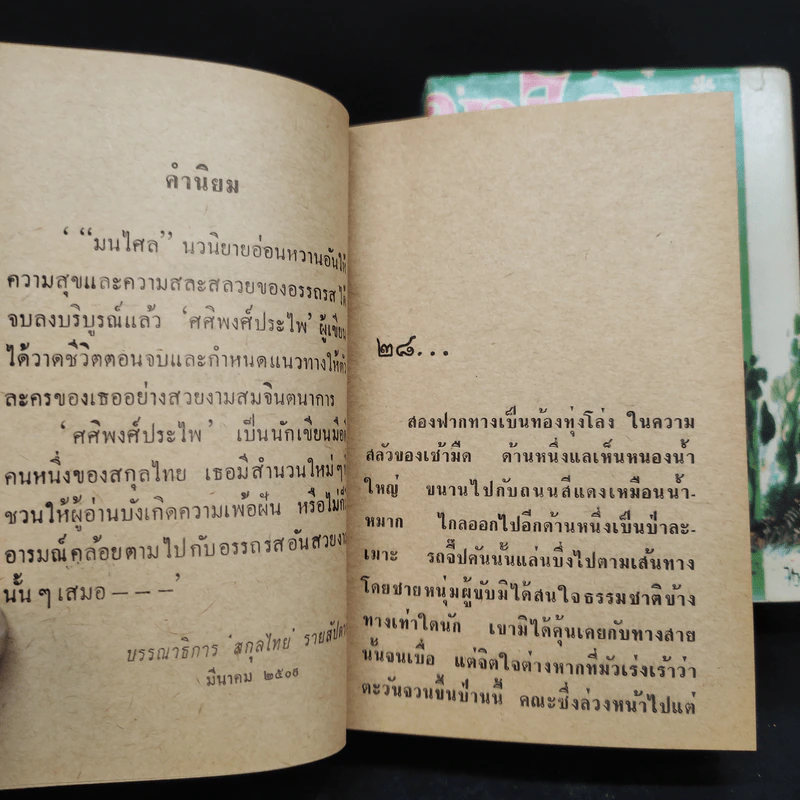 คำนิยม
‘ “มนไศล” นวนิยายอ่อนหวานอันให้
ความสุขและความสละสลวยของอรรถรส ได้
จบลงบริบูรณ์แล้ว ‘ศศิพงศ์ประไพ’ ผู้เขียน
ได้วาดชีวิตตอนจบและกำหนดแนวทางให้ตัว
ละครของเธออย่างสวยงามสมจินตนาการ
‘ศศิพงศ์ประไพ’ เป็นนักเขียน
คนหนึ่งของสกุลไทย เธอมีสำนวนใหม่ ๆ
ชวนให้ผู้อ่านบังเกิดความเพ้อฝัน หรือไม่ก็
อารมณ์คล้อยตามไปกับอรรถรสอันสวยงาม
นั้น ๆ เสมอ – – –’
บรรณาธิการ ‘สกุลไทย’ รายสัปดาห์
มีนาคม
๒๘...
สองฟากทางเป็นท้องทุ่งโล่ง ในความ
สลัวของเช้ามืด ด้านหนึ่งแลเห็นหนองน้ำ
ใหญ่ ขนานไปกับถนนสีแดงเหมือนน้ำ-
หมาก ไกลออกไปอีกด้านหนึ่งเป็นป่าละ-
เมาะ รถจี๊ปคันนั้นแล่นบึ่งไปตามเส้นทาง
โดยชายหนุ่มผู้ขับมิได้สนใจธรรมชาติข้าง
ทางเท่าใดนัก เขามิได้คุ้นเคยกับทางสาย
นั้นจนเบื่อ แต่จิตใจต่างหากที่มัวเร่งเร้าว่า
ตะวันจวนขึ้นป่านนี้ คณะซึ่งล่วงหน้าไปแต่